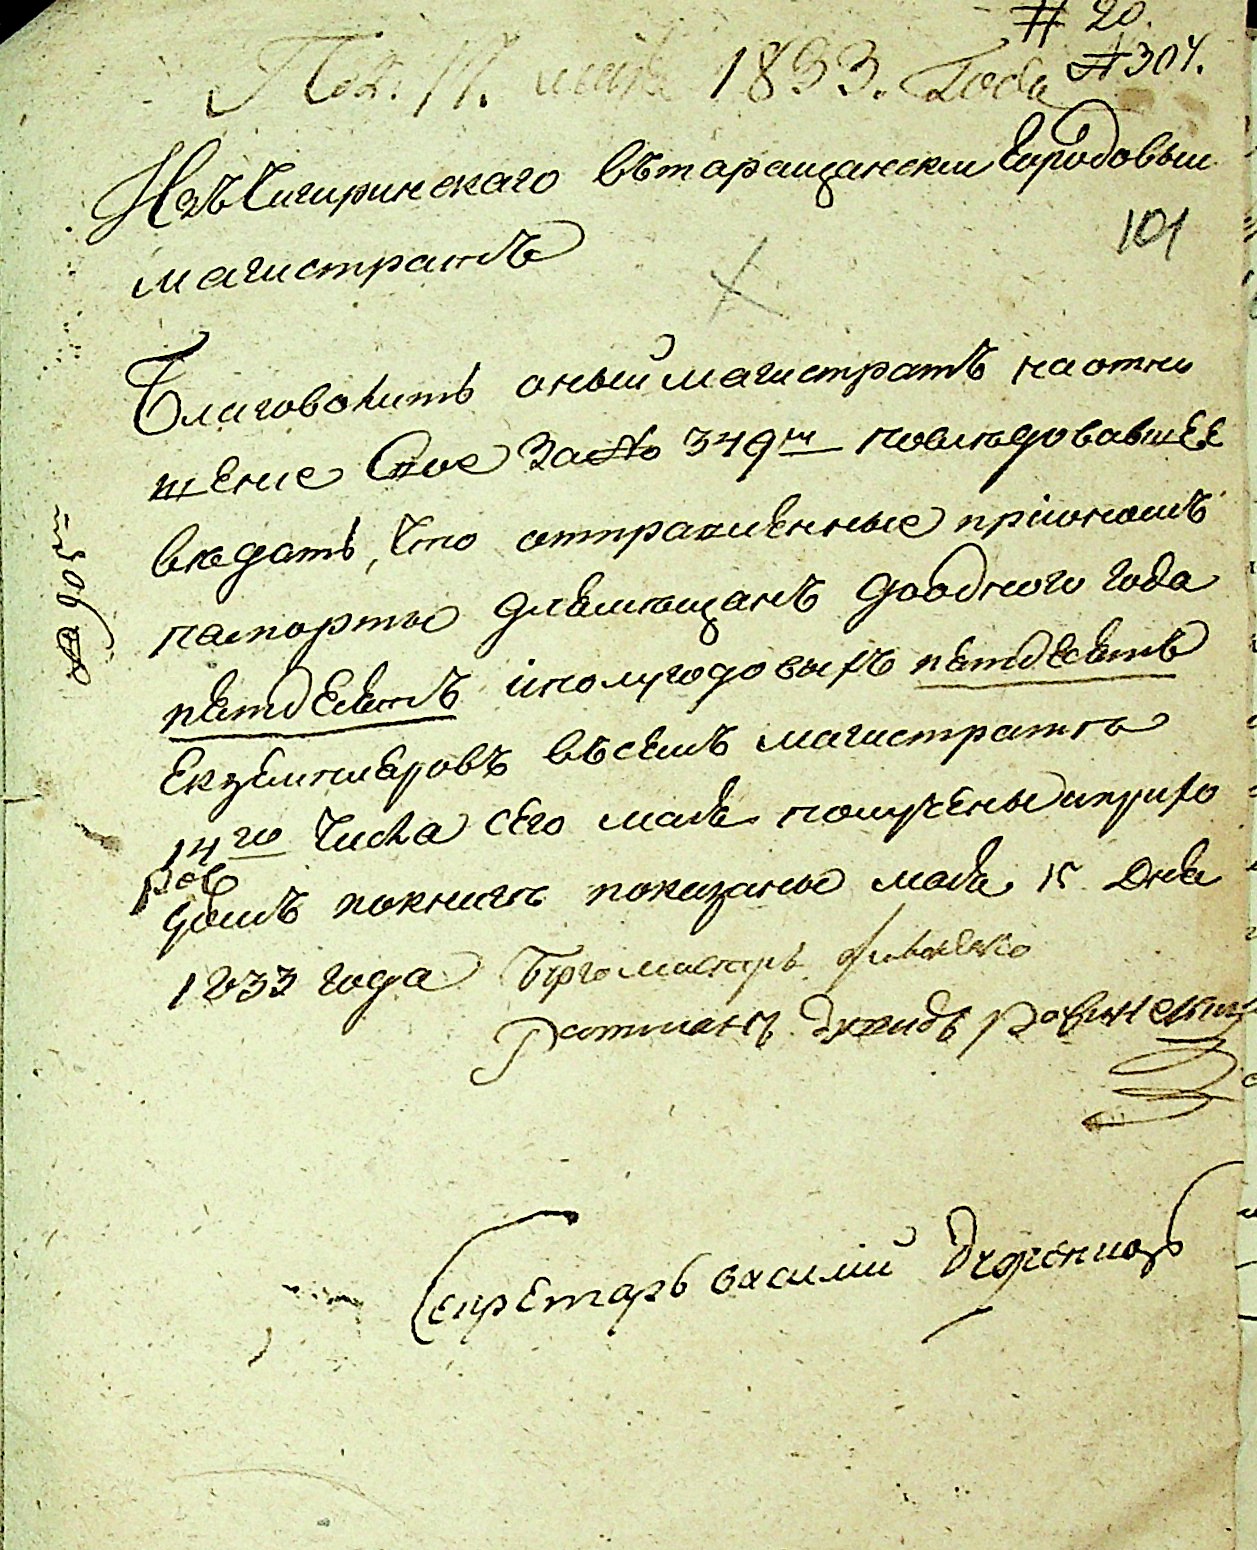 № 20.
Пол. 17. мая 1833. Года № 304.
Изъ Чигиринскаго въ таращанскии Городовыи
101
магистратъ
Благоволитъ оный магистратъ на отно
шение Свое За № 349м последовавшее
ведать, что отправленные при ономъ
паспорты для мещанъ до одного года
петдесятъ и полугодовыхъ петдесятъ
Екземпляровъ въ семъ магистрате
14го Числа Сего мая получены и прихо
домъ по книге показаны мая 15 дня
1833 года Бургомистръ
Ратманъ
Секретарь василий
№ 905